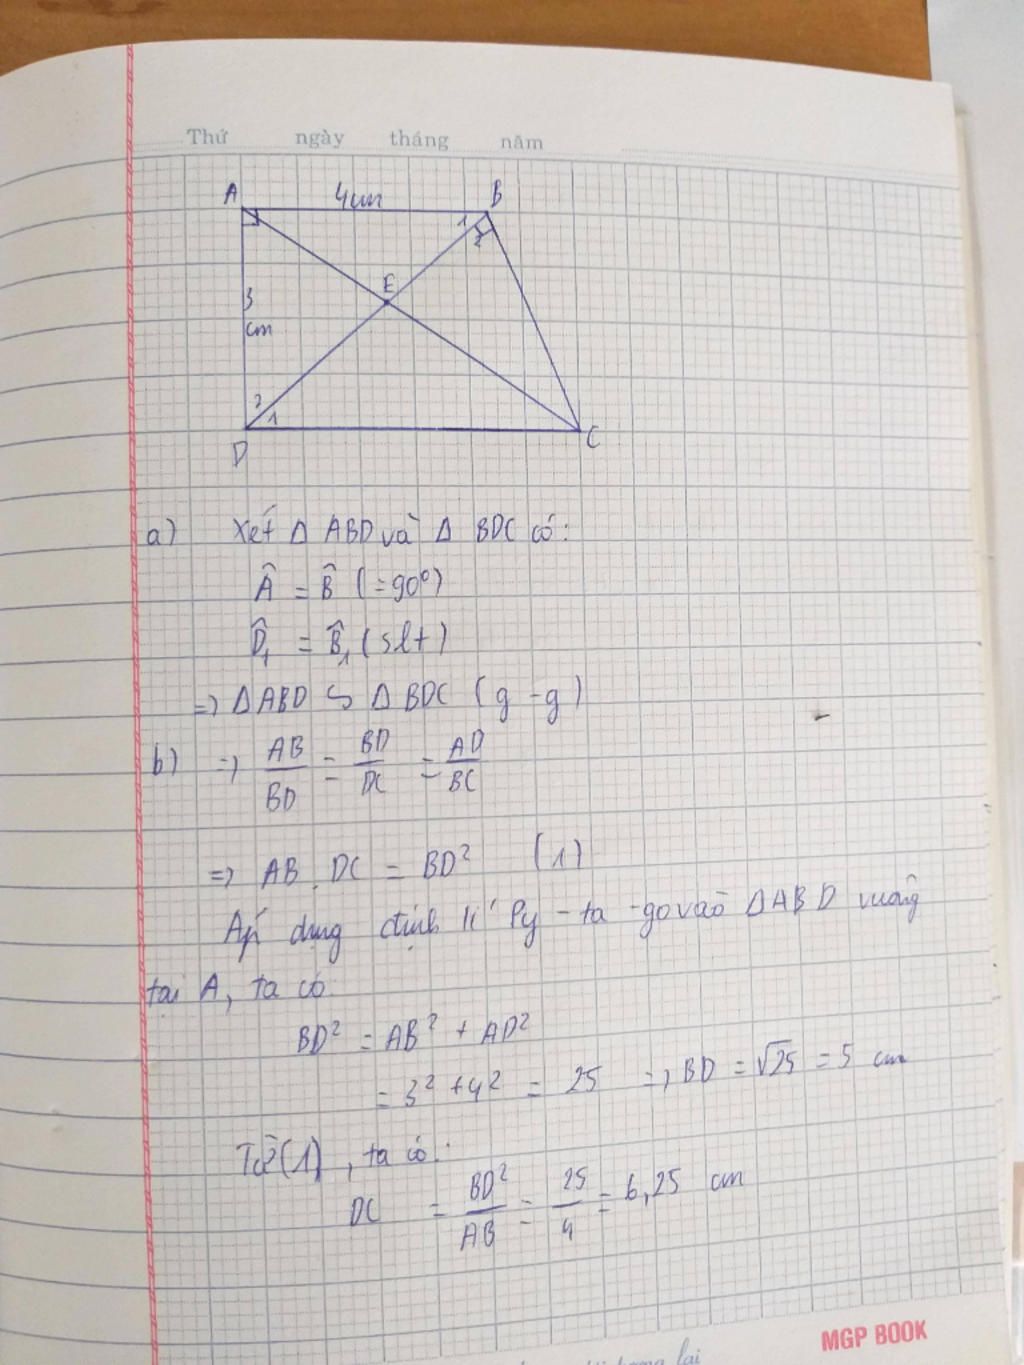 Thứ ngày tháng năm
A 4cm B
1
2
E
3
cm
2
1
D C
a) Xét Δ ABD và Δ BDC có:
Â = B̂ (=90°)
D̂₁ = B̂₁ (slt)
=> ΔABD ∽ Δ BDC (g-g)
b) => AB/BD = BD/DC = AD/BC
=> AB.DC = BD² (1)
Áp dụng định lí Py-ta-go vào ΔABD vuông
tại A, ta có
BD² = AB² + AD²
= 3² + 4² = 25 => BD = √25 = 5 cm
Từ (1), ta có:
DC = BD²/AB = 25/4 = 6,25 cm
MGP BOOK
tương lai